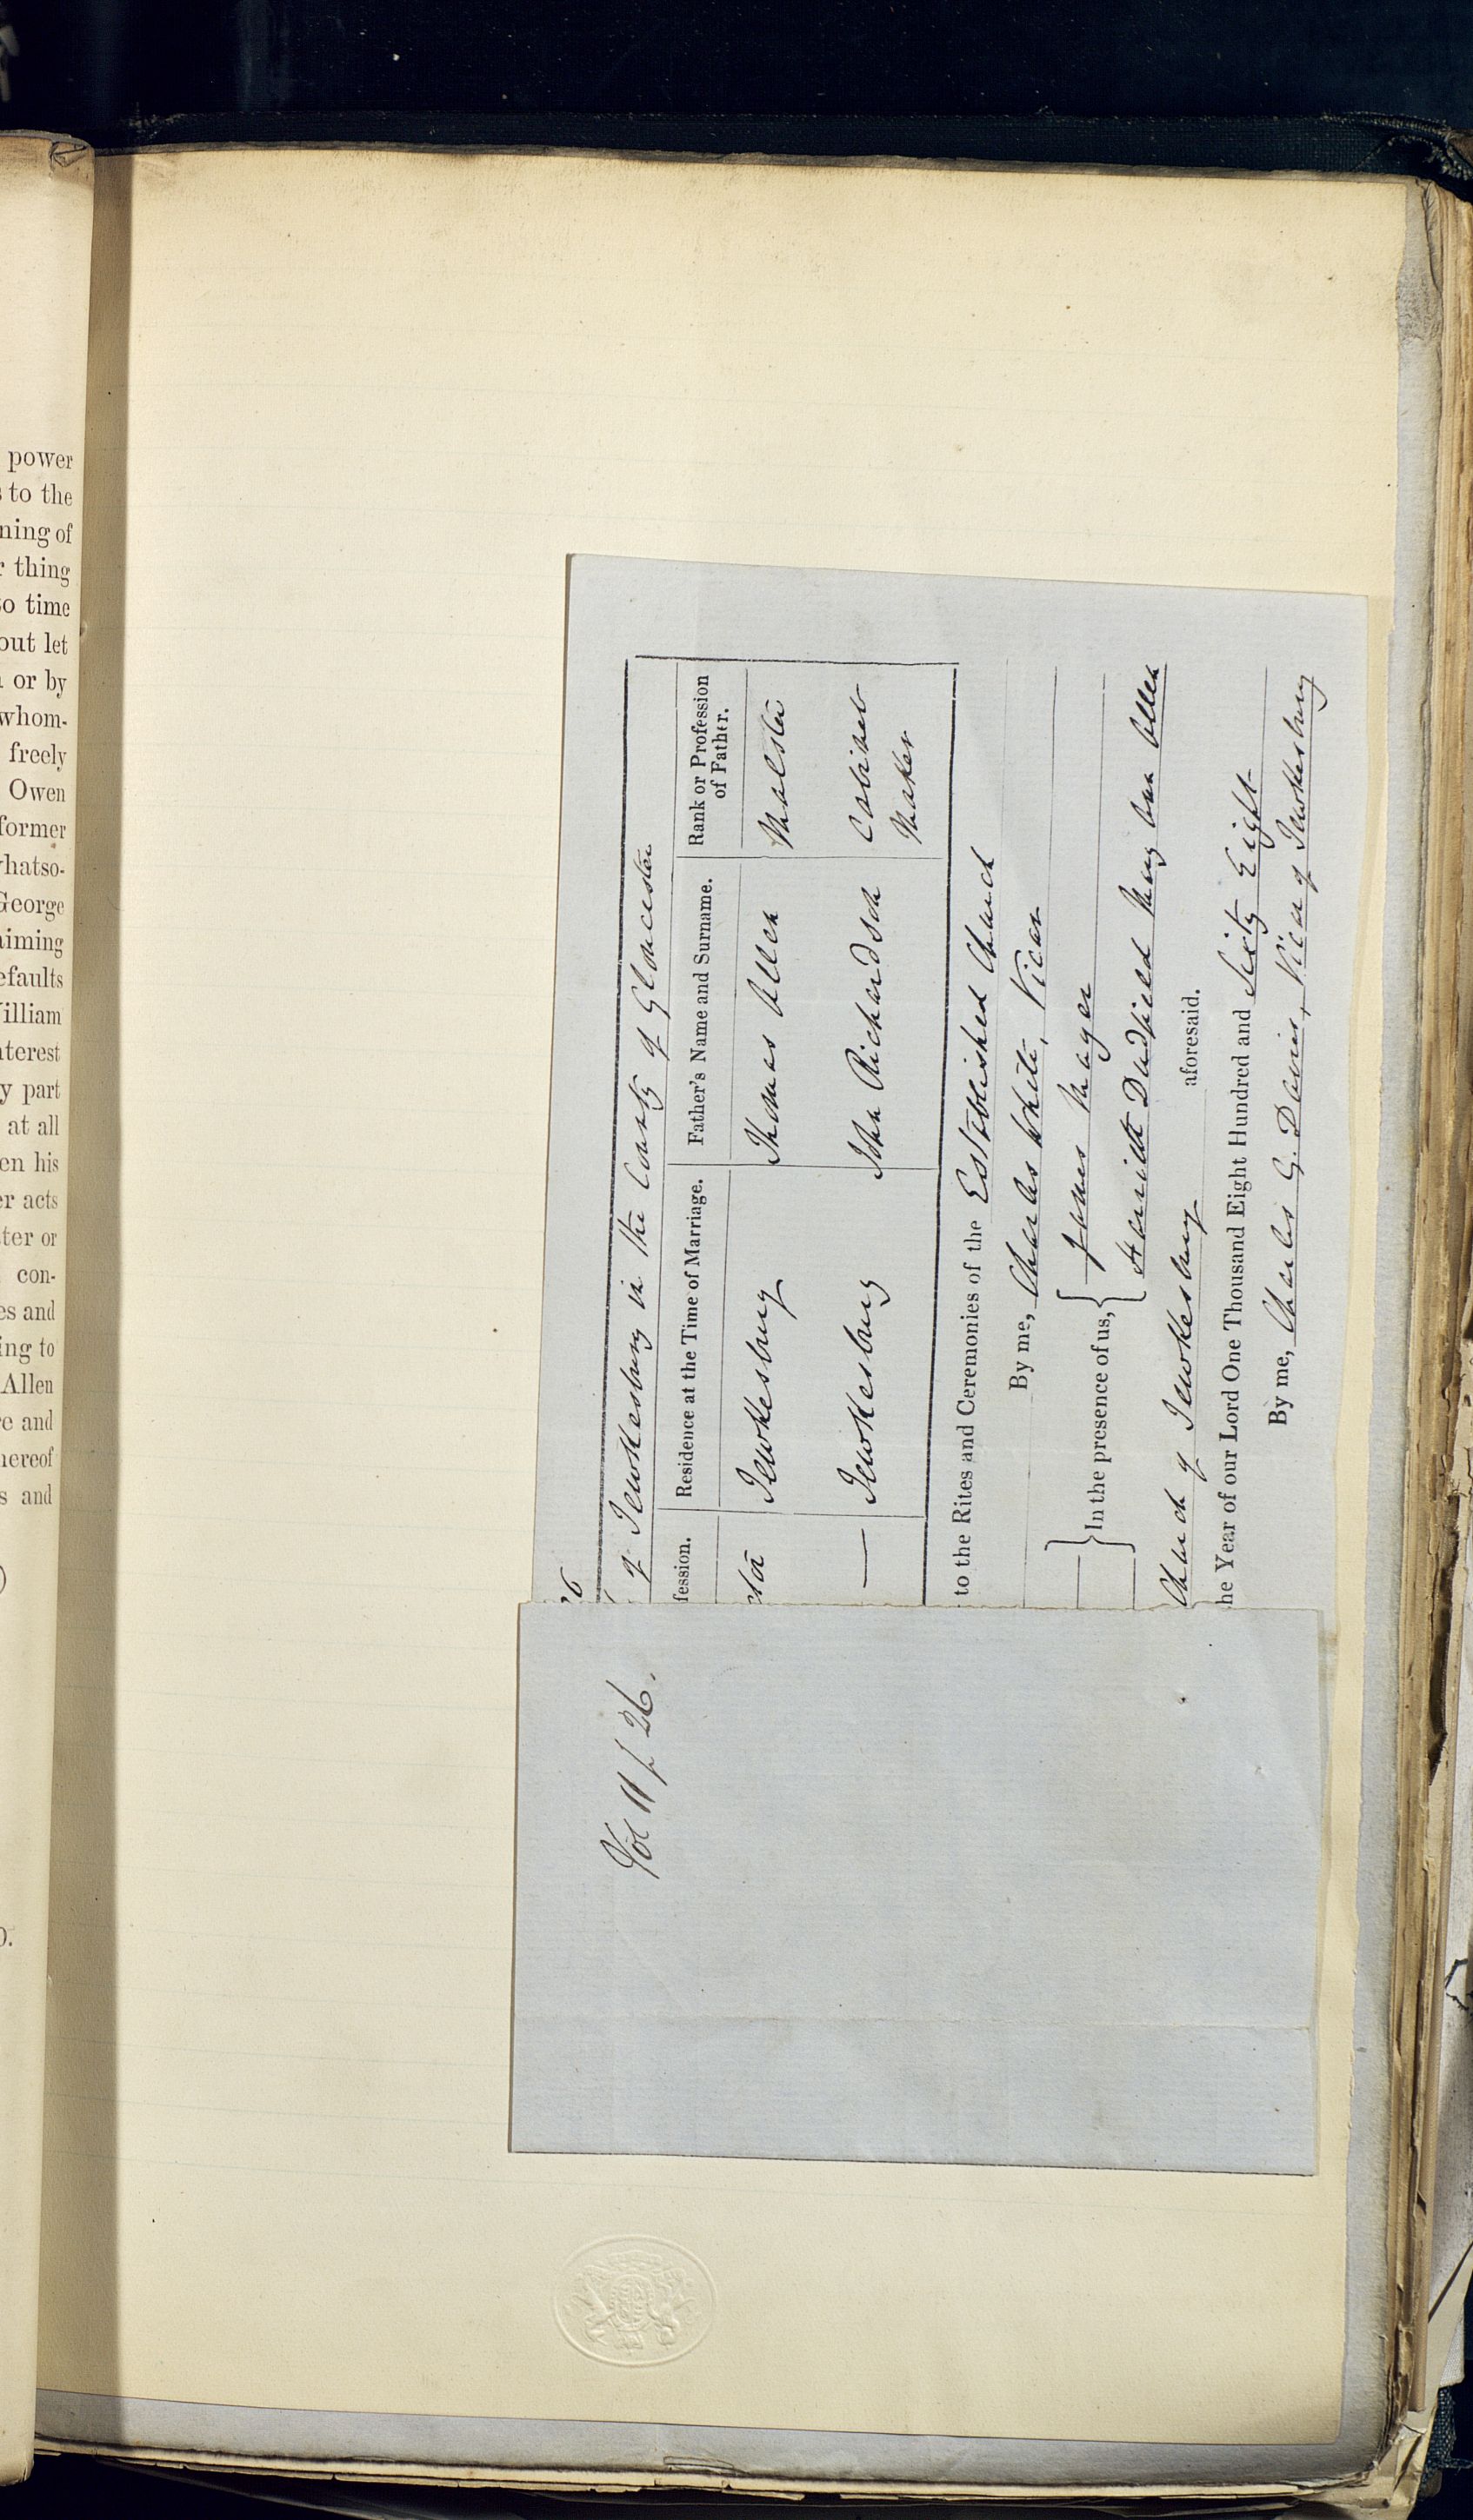 power
s to the
ning of
r thing
to time
out let
or by
whom-
freely
Owen
former
whatso-
George
aiming
efaults
William
nterest
y part
at all
en his
er acts
ter or
con-
es and
ing to
Allen
re and
hereof
s and
0.
26
of Tewkesbury in the County of Gloucester
fession. Residence at the Time of Marriage. Father's Name and Surname. Rank or Profession
of Father.
Tewkesbury Thomas Allen Malster
— Tewkesbury John Richardson Cabinet
Maker
to the Rites and Ceremonies of the Established Church
By me, Charles White, Vicar
In the presence of us, James Mayer
Harriett Dudfield Mary Ann Allen
Church of Tewkesbury aforesaid.
he Year of our Lord One Thousand Eight Hundred and Sixty Eight
By me, Charles G. Davies, Vicar of Tewkesbury
Vol 11 p 26.